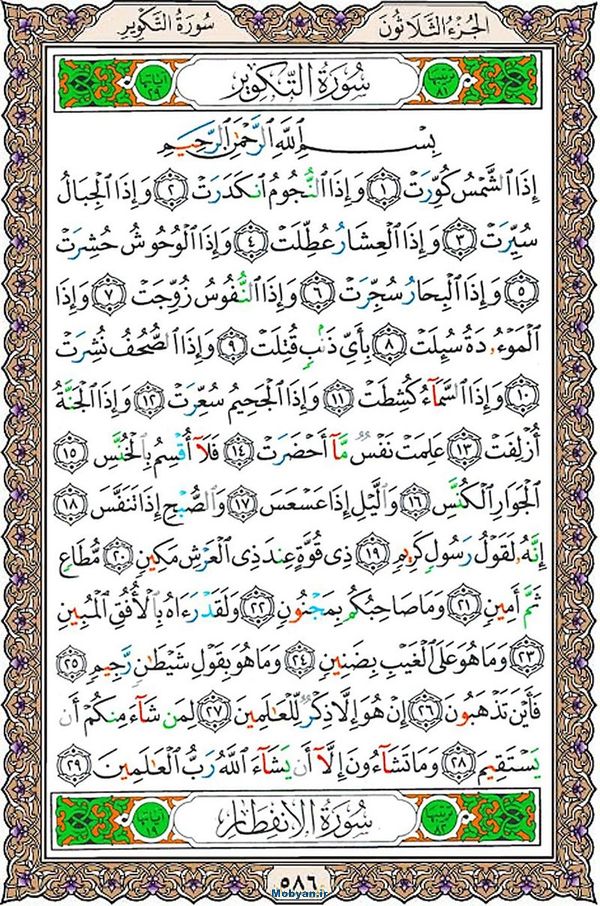 الجُزءُ الثَّلاثُونَ
سُورَةُ التَّكوِيرِ
ترتيبها ٨١
سُورَةُ التَّكوِيرِ
آياتها ٢٩
بِسۡمِ ٱللَّهِ ٱلرَّحۡمَٰنِ ٱلرَّحِيمِ
إِذَا ٱلشَّمۡسُ كُوِّرَتۡ ١ وَإِذَا ٱلنُّجُومُ ٱنكَدَرَتۡ ٢ وَإِذَا ٱلۡجِبَالُ
سُيِّرَتۡ ٣ وَإِذَا ٱلۡعِشَارُ عُطِّلَتۡ ٤ وَإِذَا ٱلۡوُحُوشُ حُشِرَتۡ
٥ وَإِذَا ٱلۡبِحَارُ سُجِّرَتۡ ٦ وَإِذَا ٱلنُّفُوسُ زُوِّجَتۡ ٧ وَإِذَا
ٱلۡمَوۡءُۥدَةُ سُئِلَتۡ ٨ بِأَيِّ ذَنۢبٖ قُتِلَتۡ ٩ وَإِذَا ٱلصُّحُفُ نُشِرَتۡ
١٠ وَإِذَا ٱلسَّمَآءُ كُشِطَتۡ ١١ وَإِذَا ٱلۡجَحِيمُ سُعِّرَتۡ ١٢ وَإِذَا ٱلۡجَنَّةُ
أُزۡلِفَتۡ ١٣ عَلِمَتۡ نَفۡسٞ مَّآ أَحۡضَرَتۡ ١٤ فَلَآ أُقۡسِمُ بِٱلۡخُنَّسِ ١٥
ٱلۡجَوَارِ ٱلۡكُنَّسِ ١٦ وَٱلَّيۡلِ إِذَا عَسۡعَسَ ١٧ وَٱلصُّبۡحِ إِذَا تَنَفَّسَ ١٨
إِنَّهُۥ لَقَوۡلُ رَسُولٖ كَرِيمٖ ١٩ ذِي قُوَّةٍ عِندَ ذِي ٱلۡعَرۡشِ مَكِينٖ ٢٠ مُّطَاعٖ
ثَمَّ أَمِينٖ ٢١ وَمَا صَاحِبُكُم بِمَجۡنُونٖ ٢٢ وَلَقَدۡ رَءَاهُ بِٱلۡأُفُقِ ٱلۡمُبِينِ
٢٣ وَمَا هُوَ عَلَى ٱلۡغَيۡبِ بِضَنِينٖ ٢٤ وَمَا هُوَ بِقَوۡلِ شَيۡطَٰنٖ رَّجِيمٖ ٢٥
فَأَيۡنَ تَذۡهَبُونَ ٢٦ إِنۡ هُوَ إِلَّا ذِكۡرٞ لِّلۡعَٰلَمِينَ ٢٧ لِمَن شَآءَ مِنكُمۡ أَن
يَسۡتَقِيمَ ٢٨ وَمَا تَشَآءُونَ إِلَّآ أَن يَشَآءَ ٱللَّهُ رَبُّ ٱلۡعَٰلَمِينَ ٢٩
ترتيبها ٨٢
سُورَةُ الانفِطَارِ
آياتها ١٩
٥٨٦
Mobyan.ir